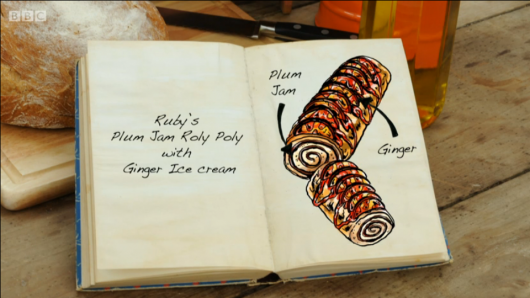 BBC
Ruby's
Plum Jam Roly Poly
with
Ginger Ice cream
Plum
Jam
Ginger